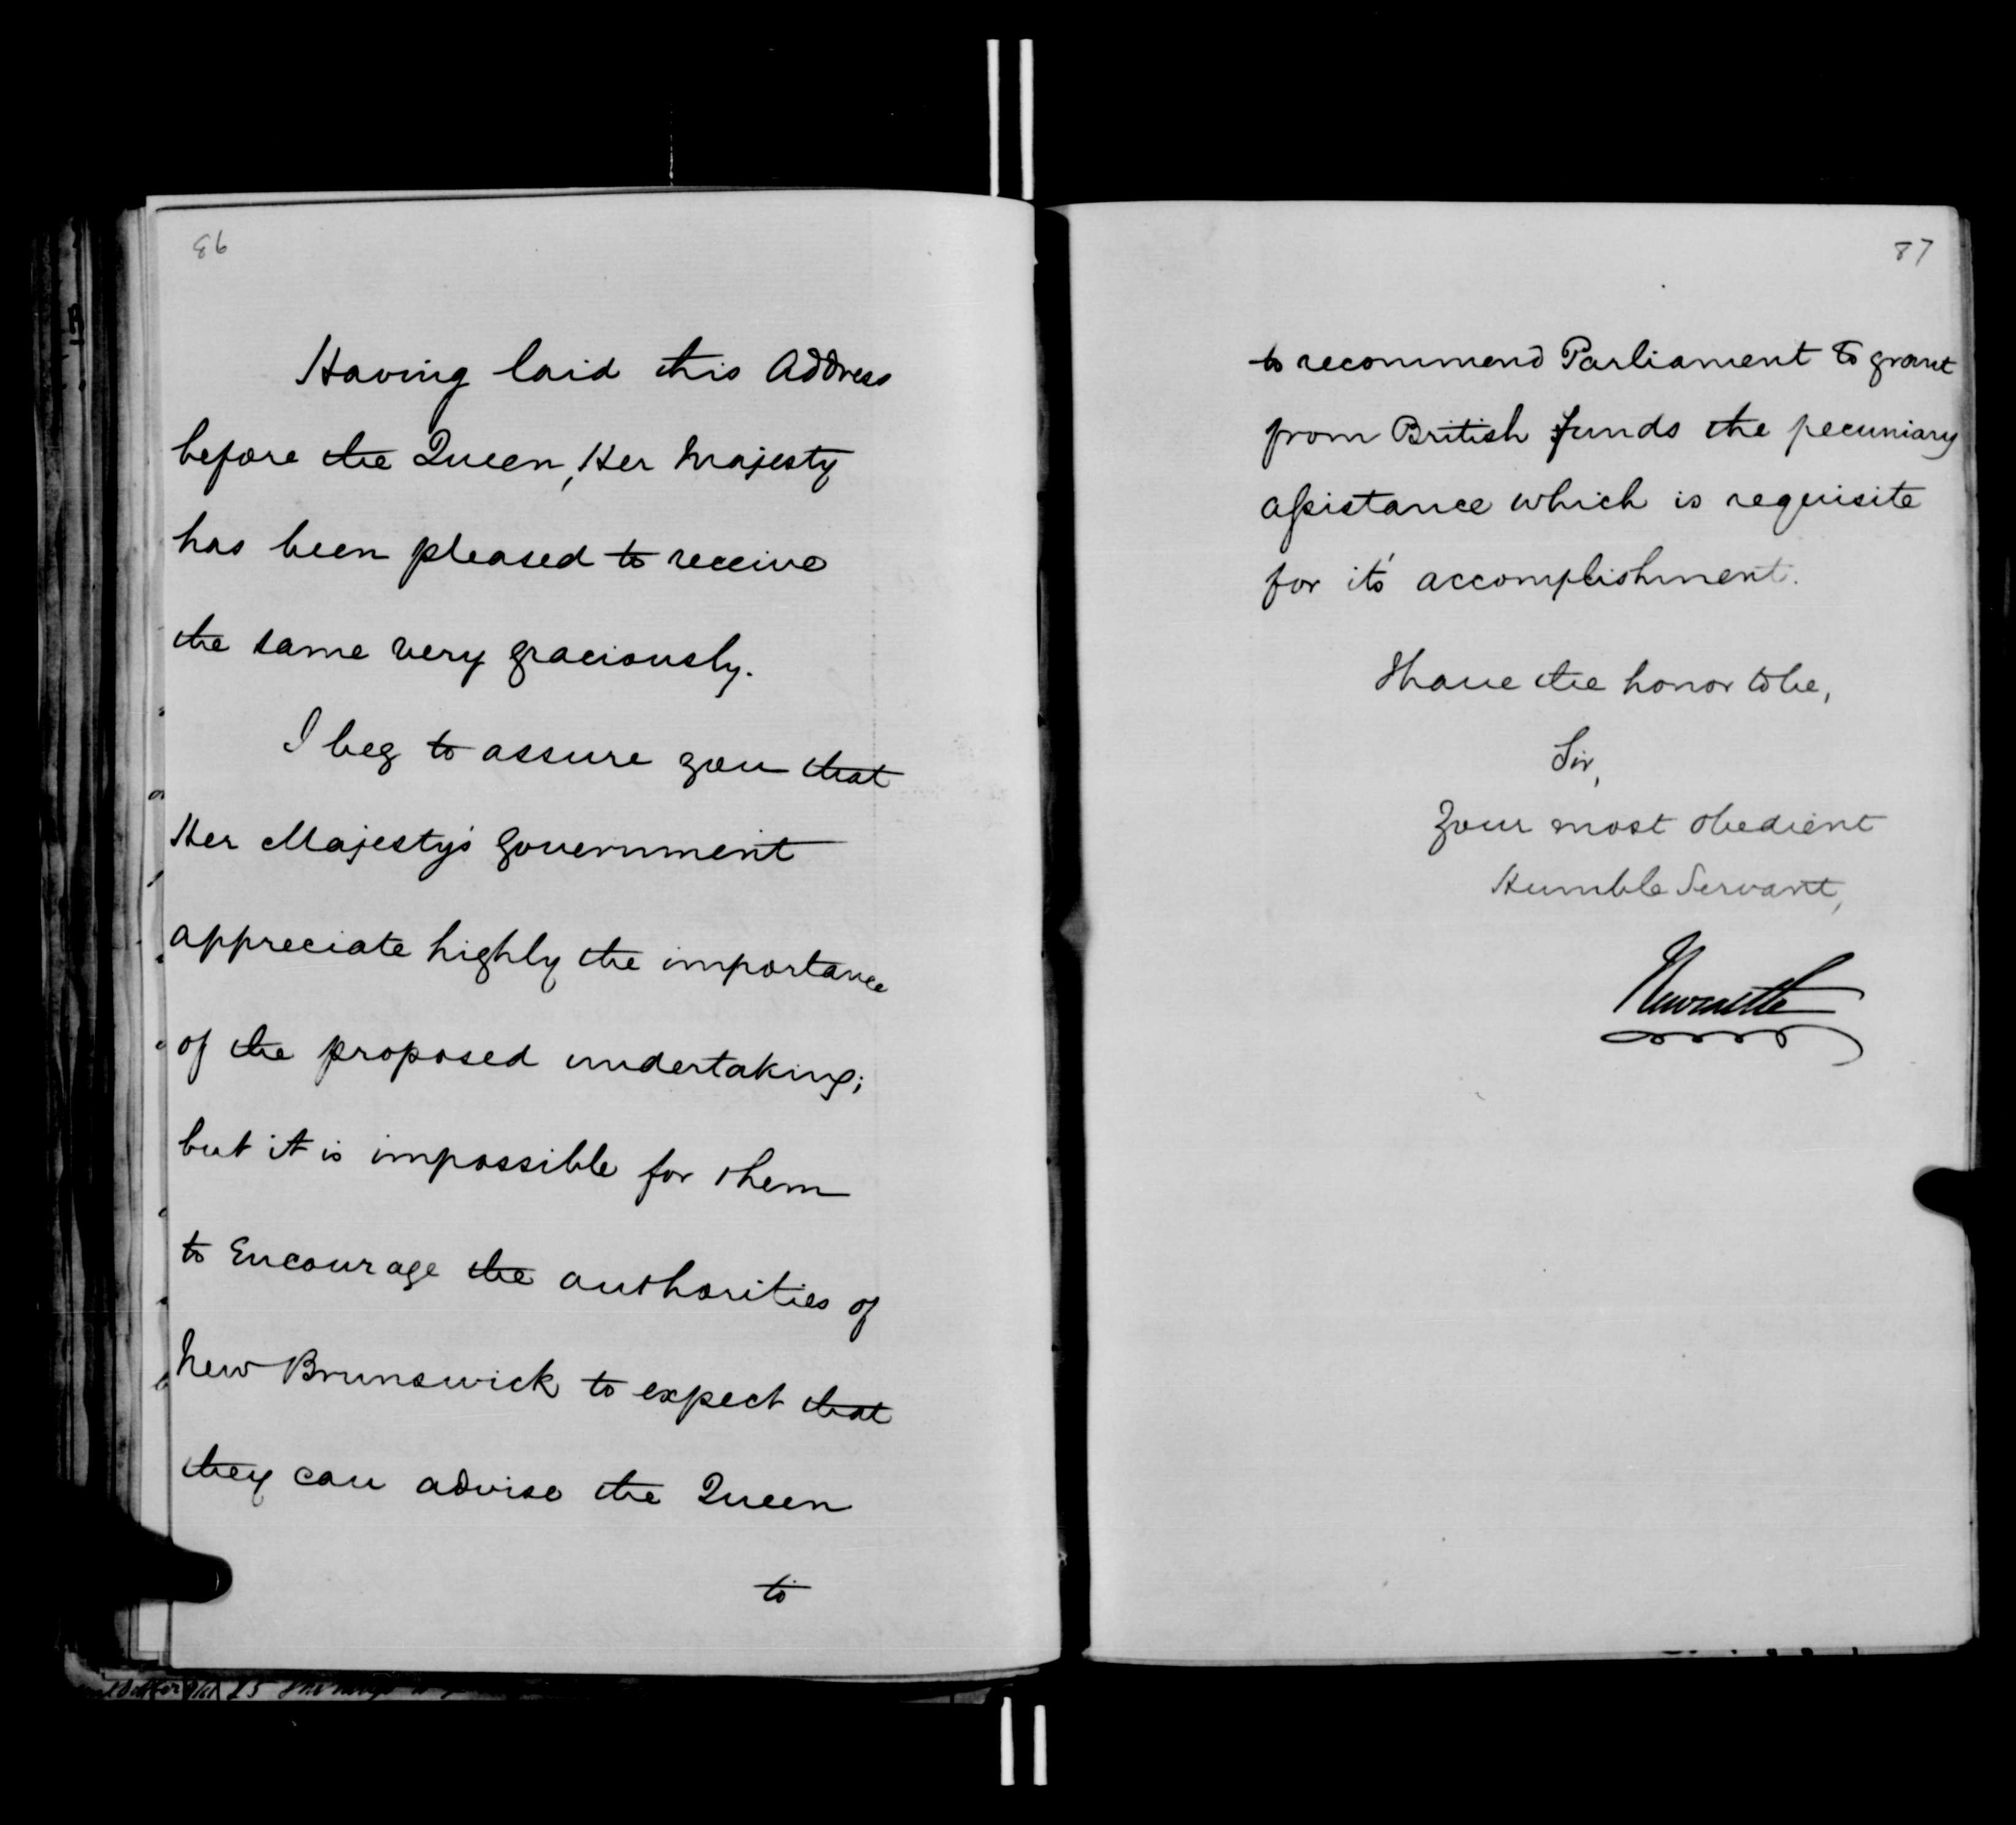 86
Having laid this Address
before the Queen, Her Majesty
has been pleased to receive
the same very graciously.
I beg to assure you that
Her Majesty's Government
appreciate highly the importance
of the proposed undertaking;
but it is impossible for them
to encourage the authorities of
New Brunswick to expect that
they can advise the Queen
to
87
to recommend Parliament to grant
from British funds the pecuniary
assistance which is requisite
for it's accomplishment.
I have the honor to be,
Sir,
Your most obedient
Humble Servant,
Newcastle